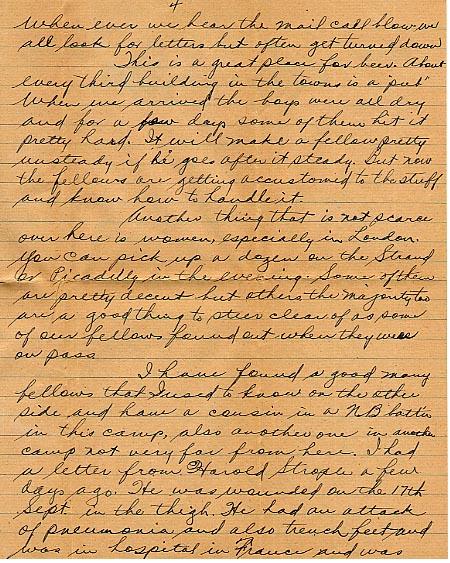 4
When ever we hear the mail call blow we
all look for letters but often get turned down
This is a great place for beer. About
every third building in the towns is a "pub"
When we arrived the boys were all dry
and for a few days some of them hit it
pretty hard. It will make a fellow pretty
unsteady if he goes after it steady. But now
the fellows are getting accustomed to the stuff
and know how to handle it.
Another thing that is not scarce
over here is women, especially in London.
You can pick up a dozen on the Strand
or Picadilly in the evening. Some of them
are pretty decent but others the majority too
are a good thing to steer clear of as some
of our fellows found out when they were
on pass
I have found a good many
fellows that I used to know on the other
side and have a cousin in a NB battn
in this camp, also another one in another
camp not very far from here. I had
a letter from Harold Strople a few
days ago. He was wounded on the 17th
Sept. in the thigh. He had an attack
of pneumonia and also trench feet and
was in hospital in France and was